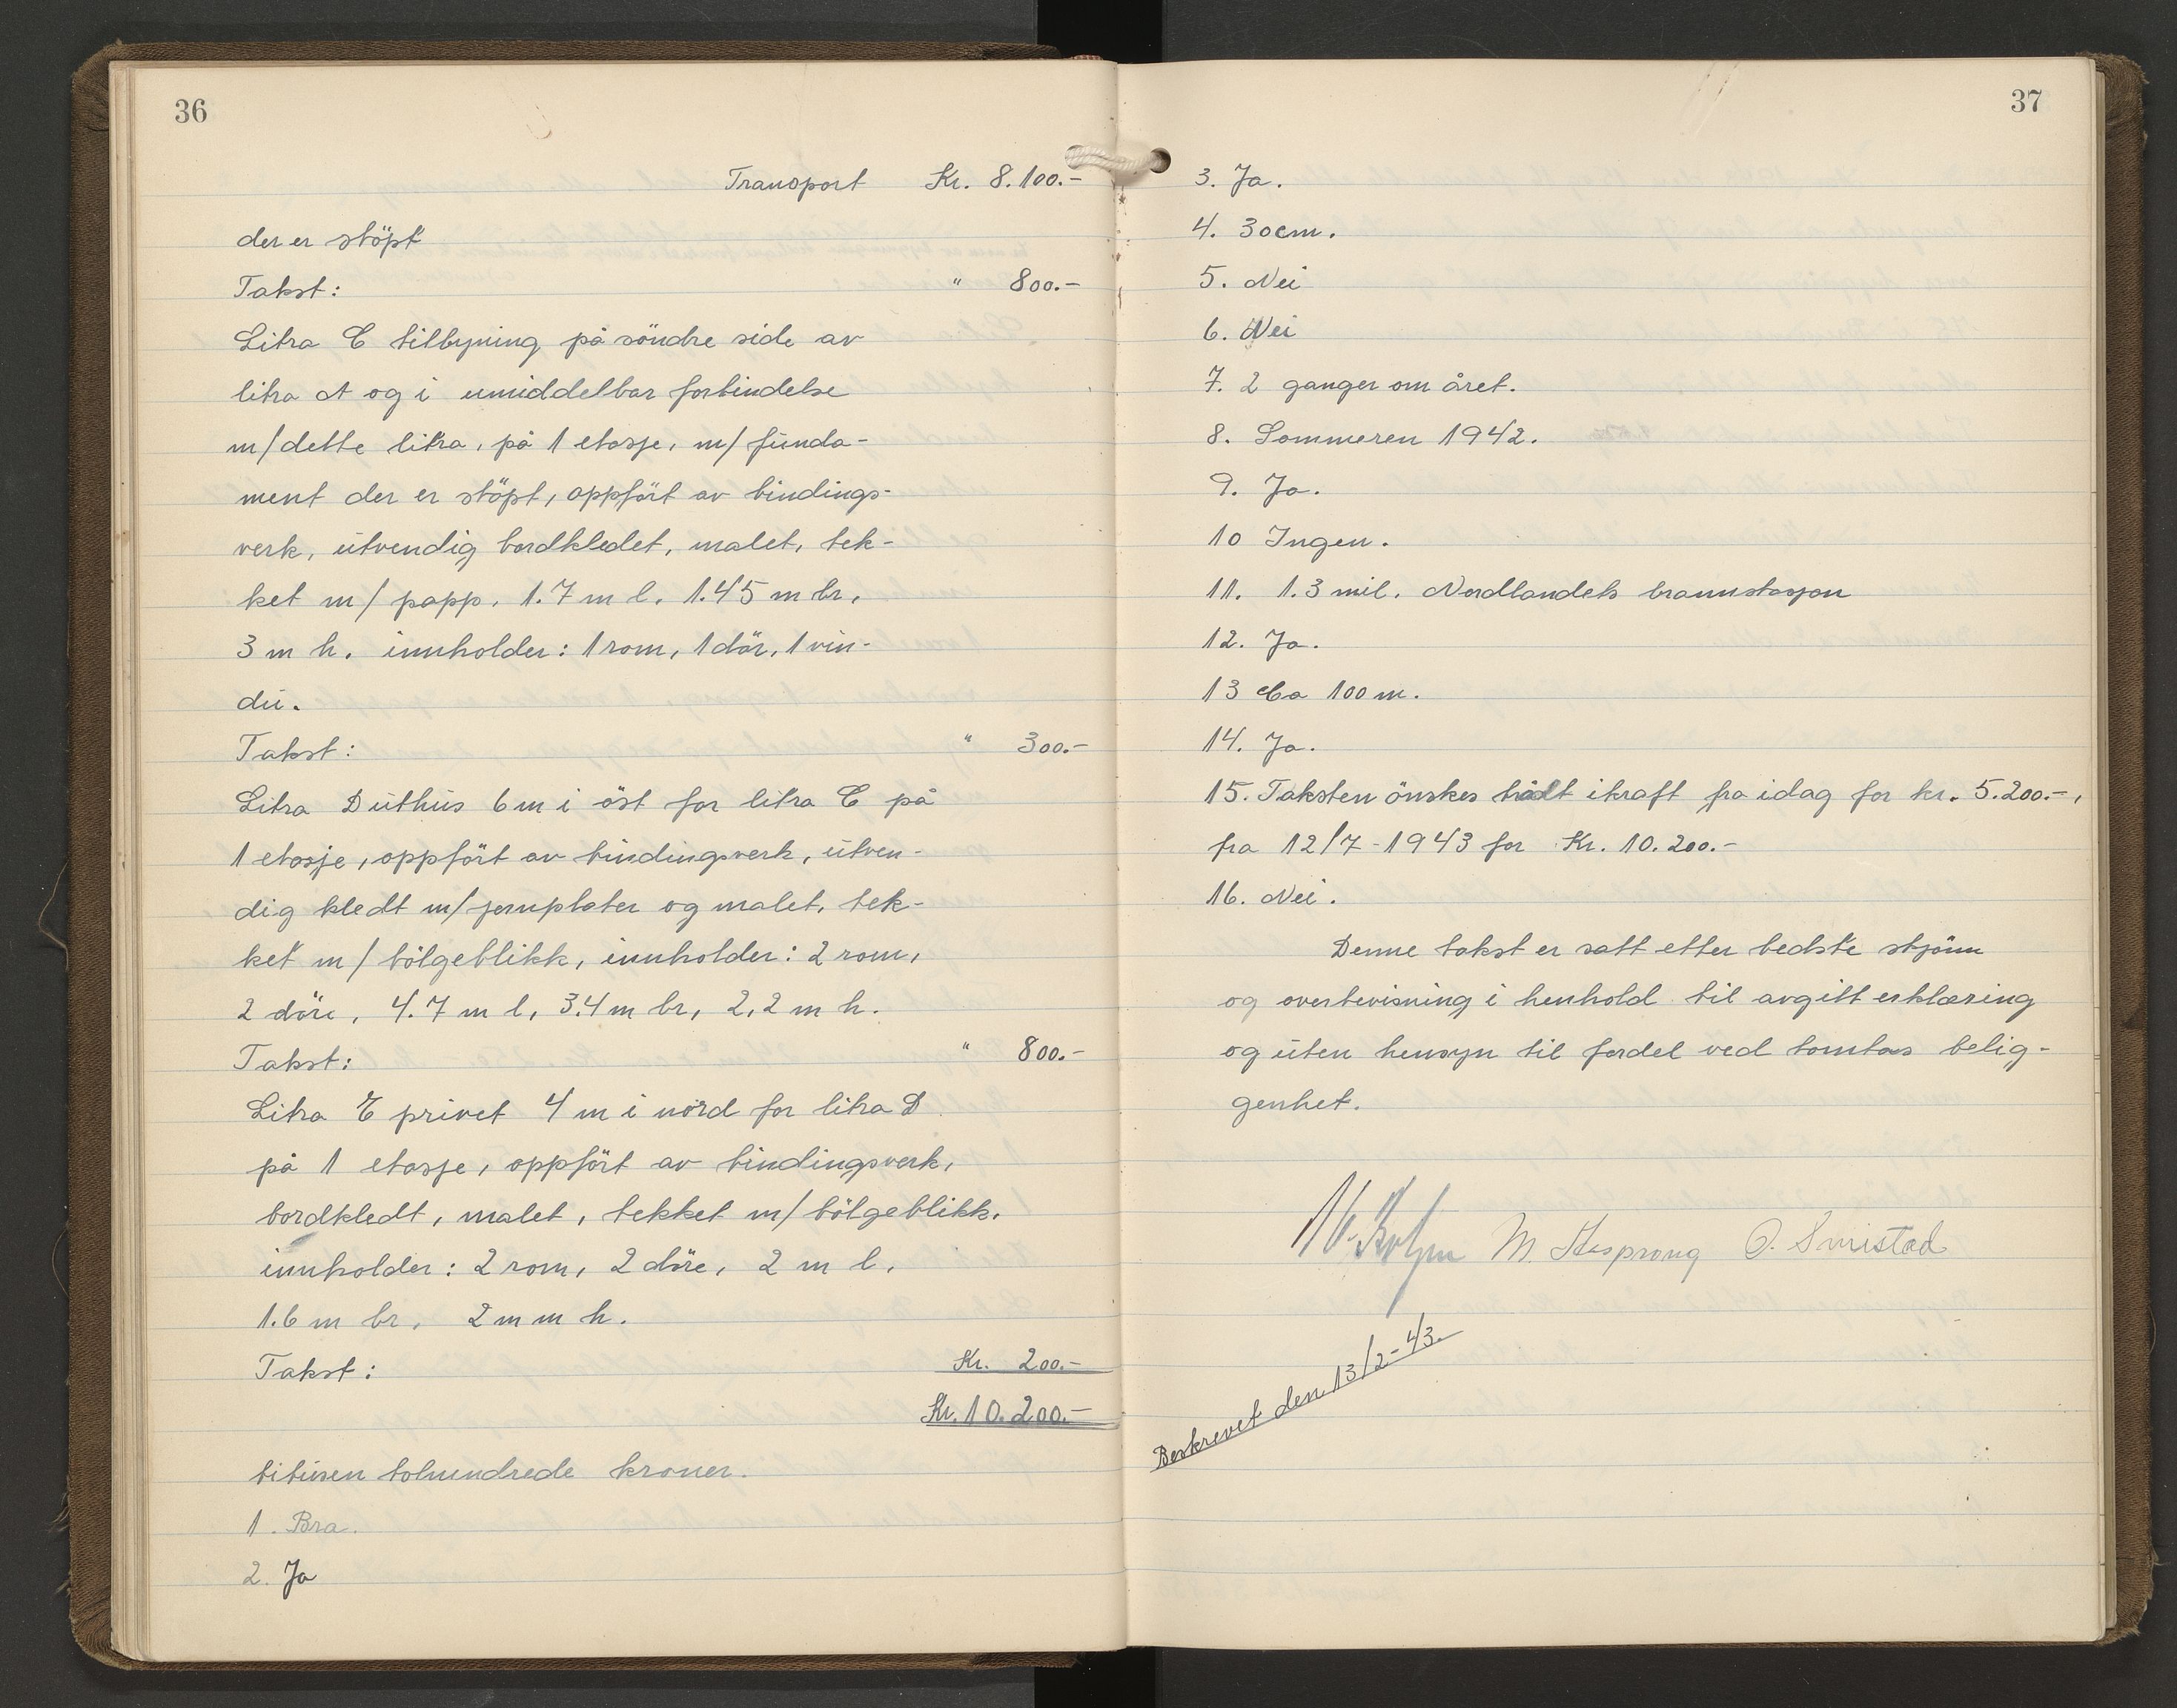 36
Transport Kr. 8.100.-
der er stöpt
Takst: " 800.-
Litra C tilbyning på söndre side av
litra A og i umiddelbar forbindelse
m/dette litra, på 1 etasje, m/ funda-
ment der er stöpt, oppfört av bindings-
verk, utvendig bordkledet, malet, tek-
ket m/ papp. 1.7 m l. 1.45 m br,
3 m h. innholder: 1 rom, 1 dör, 1 vin-
du.
Takst: " 300.-
Litra D uthus 6 m i öst for litra C på
1 etasje, oppfört av bindingsverk, utven-
dig kledt m/jernplater og malet, tek-
ket m/ bölgeblikk, innholder: 2 rom,
2 döre, 4.7 m l, 3.4 m br, 2,2 m h.
Takst: " 800.-
Litra E privet 4 m i nord for litra D
på 1 etasje, oppfört av bindingsverk,
bordkledt, malet, tekket m/ bölgeblikk.
innholder: 2 rom, 2 döre, 2 m l,
1.6 m br, 2 m m h.
Takst: Kr. 200.-
Kr. 10.200.-
titusen tohundrede kroner.
1. Bra.
2. Ja
37
3. Ja.
4. 30cm.
5. Nei
6. Nei
7. 2 ganger om året.
8. Sommeren 1942.
9. Ja.
10 Ingen.
11. 1.3 mil. Nordlandets brannstasjon
12. Ja.
13 Ca 100 m.
14. Ja.
15. Taksten önskes trådt ikraft fra idag for kr. 5.200.-,
fra 12/7-1943 for Kr. 10.200.-
16. Nei.
Denne takst er satt etter bedste skjönn
og overbevisning i henhold til avgitt erklæring
og uten hensyn til fordel ved tomtas belig-
genhet.
M. Stasprong O. Smistad
Beskrevet den 13/2-43.